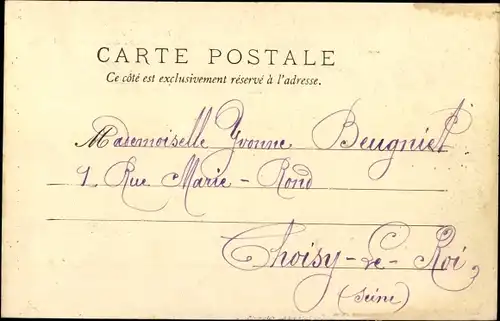 CARTE POSTALE
Ce côté est exclusivement réservé à l'adresse.
Mademoiselle Yvonne Beugniet
1 Rue Marie-Rond
Choisy-le-Roi,
(Seine)